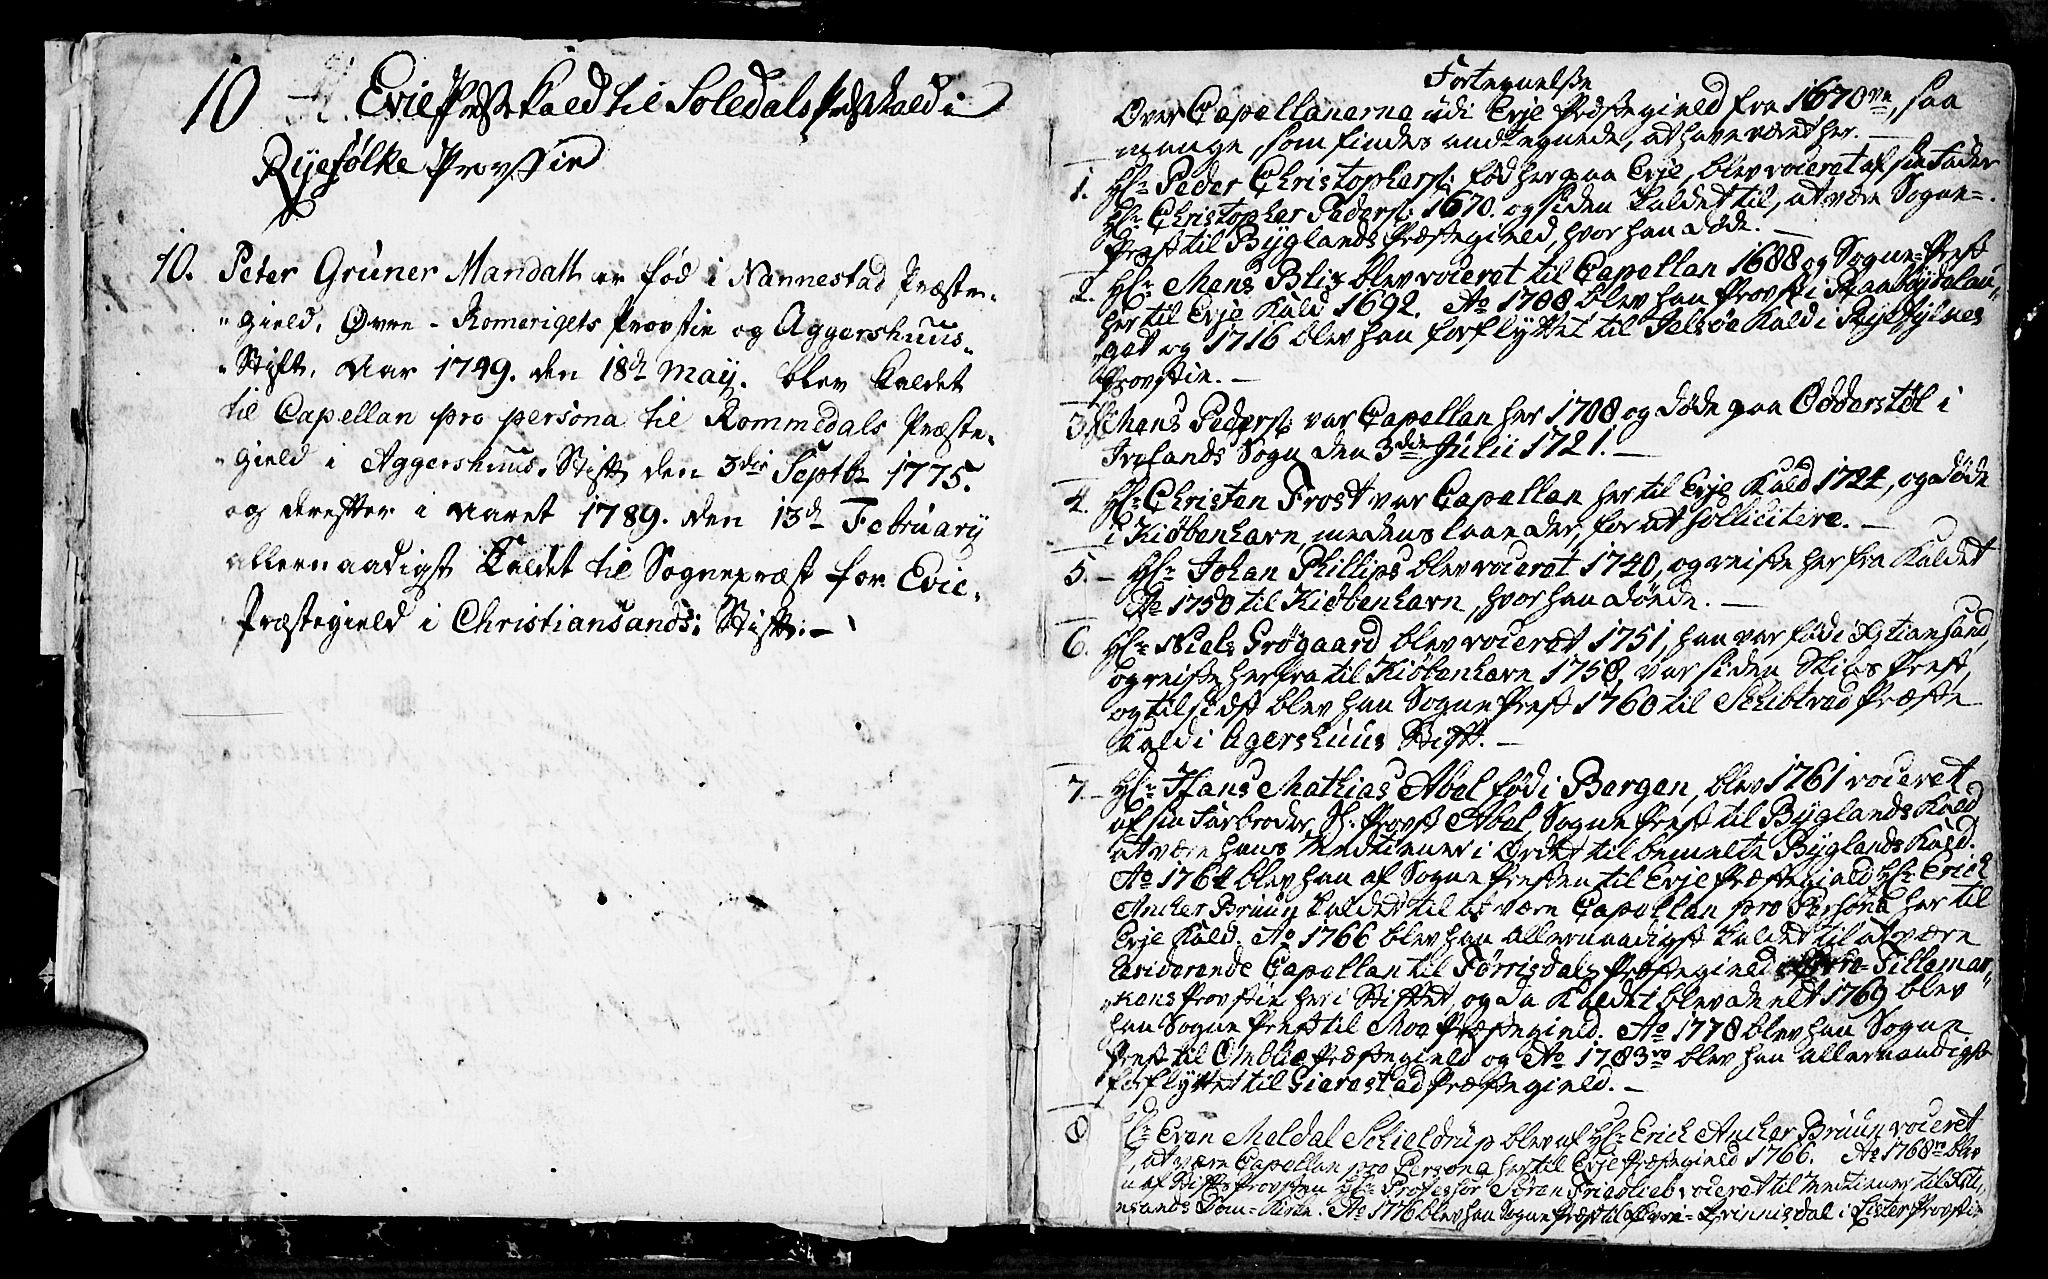 10 Evie Præste Kald til Soledals Præstekald i
Ryefølke Provstie
10. Peter Grüner Mandall er fød i Nannestad Præste-
gield, Øvre-Romerigets Provstie og Aggershuus-
Stift, Aar 1749. den 18de May. blev kaldet
til Capellan pro persona til Rommedals Præste-
gield i Aggershuus-Stift den 3die Septbr 1775.
og derefter i Aaret 1789. den 13de February
allernaadigst kaldet til Sognepræst for Evie-
Præstegield i Christiansands: Stift. -
Fortegnelse
Over Capellanerne udi Evje Præstegield fra 1670ve, saa
mange, som findes andtegnede, at have været her. -
1. Hr. Peder Christophers: fød her paa Evje, blev voieret af sin Fader
Hr. Christopher Peders: 1670. og siden kaldet til, at være Sogne-
Præst til Byglands Præstegield, hvor han døde. -
2. Hr. Mons Blix blev voieret til Capellan 1688 og Sogne-Præst
her til Evje Kald 1692. Ao 1708 blev han Provst i Raabydelau-
get og 1716 blev han forflyttet til Jelsøe Kald i Ryefylkes
Provstie. -
3. Mons Peders: var Capellan her 1708 og døde paa Odderstøl i
Iveland Sogn den 3die Julii 1721. -
4. Hr. Christen Frost var Capellan her til Evje Kald 1724, og døde
i Kiøbenhavn, medens laae der, for at sollicitere. -
5. - Hr. Johan Phillips blev voieret 1740, og reiste her fra Kaldet
Ao 1750 til Kiøbenhavn, hvor han døede. -
6. Hr. Niels Grøgaard blev voieret 1751, han var fød i Xstiansand,
og reiste herfra til Kiøbenhavn 1758, var siden Skibs Præst,
og tilsidst blev han Sogne Præst 1760 til Schibtved Præste
Kald i Agershuus Stift. -
7. - Hr. Hans Mathias Abel fød i Bergen, blev 1761 voieret
af sin Farbroder, Hr. Provst Abel, Sogne Præst til Byglands Kald
at være hans Medtiener i Ordet til bemelte Byglands Kald.
Ao 1764 blev han af Sogne Præsten til Evje Præstegield Hr. Erich
Ancher Bruun kaldet til at være Capellan pro Persona her til
Evje Kald. Ao 1766 blev han allernaadigst kaldet til at være
residerende Capellan til Førrisdals Præstegield Tillemar-
kens Provstie her i Stiftet, og da Kaldet blev deelt 1769 blev
han Sogne Præst til Moe Præstegield. Ao 1778 blev han Sogne
Præst til Omblie Præstegield og Ao 1783ve blev han allernaadigst
forflyttet til Gierestad Præstegield. -
8 Hr. Even Meldal Schieldrup blev af Hr. Erich Ancher Bruun voieret
at være Capellan pro Persona her til Evje Præstegield 1766. Ao 1768ve blev
af Stifts Provsten Hr. Professor Søren Friedlieb voieret til Medtiener til Xsti-
ansands Dom-Kirke. Ao 1776 blev han Sogne Præst til Qvinnisdal i Lister Provstie